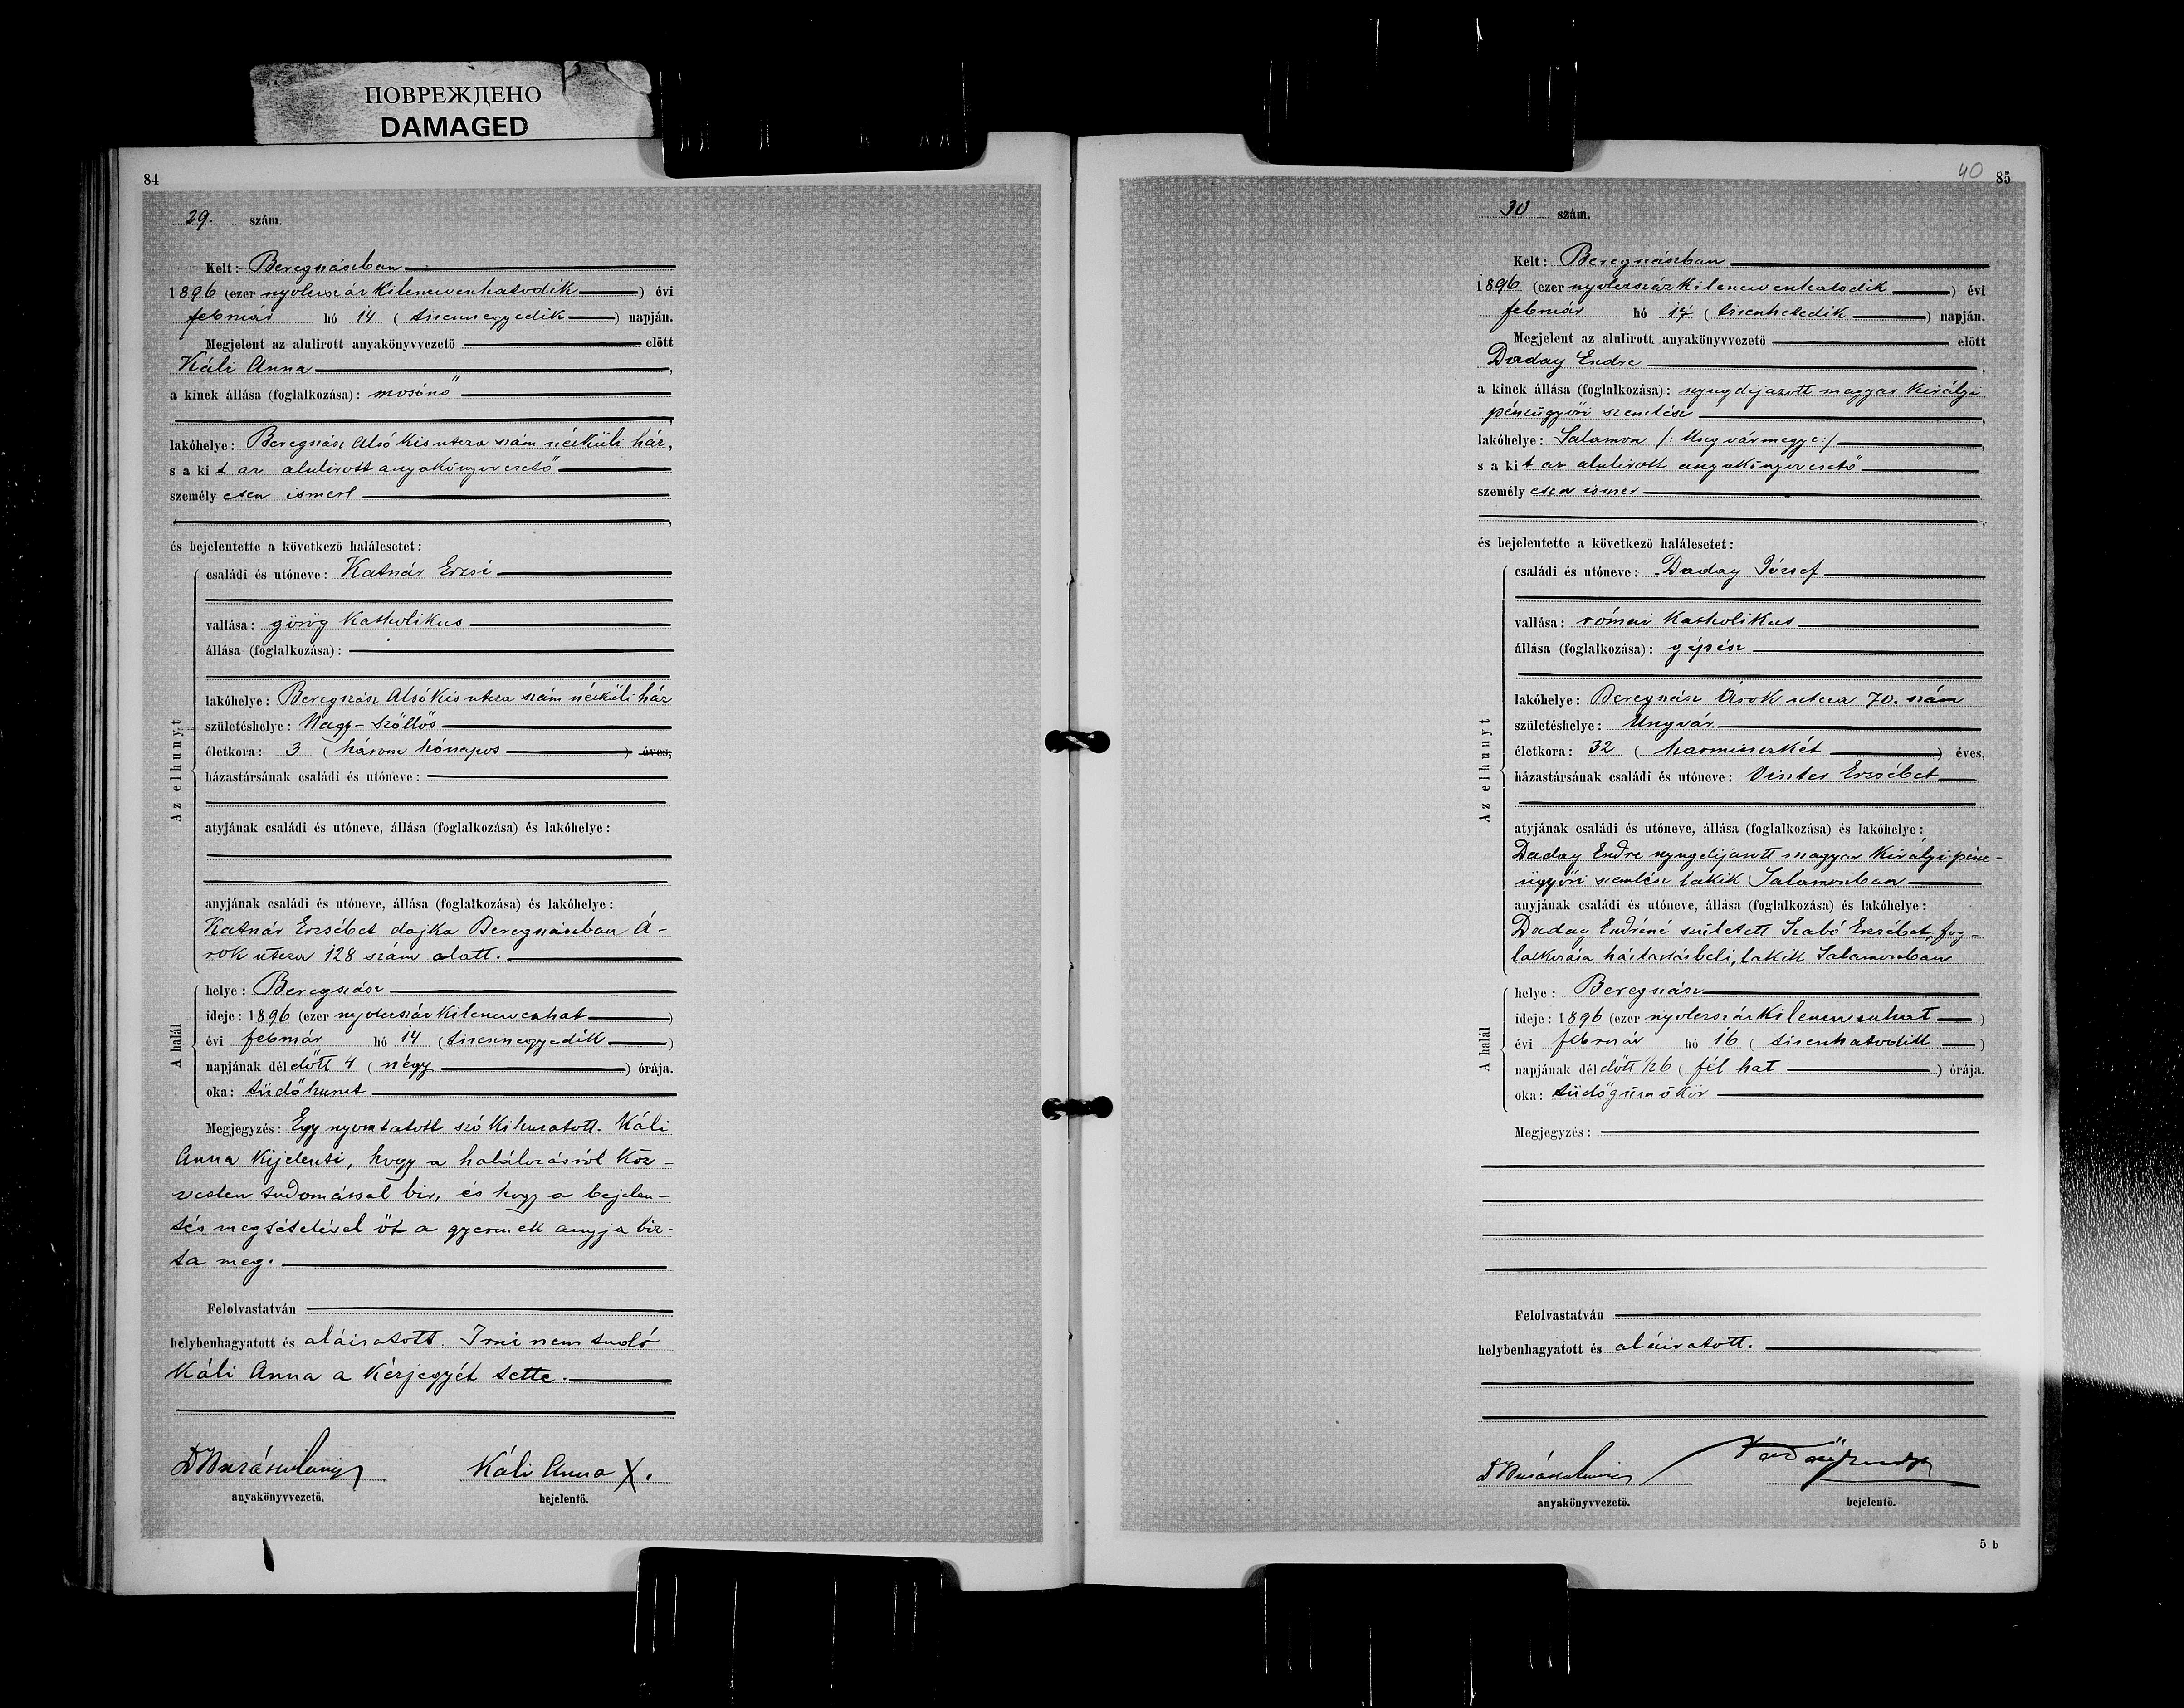 ПОВРЕЖДЕНО
DAMAGED
84
29. szám.
Kelt: Beregszászban
1896 (ezer nyolcszáz kilencvenhatodik) évi
február hó 14 (tizennegyedik) napján.
Megjelent az alulirott anyakönyvvezető előtt
Káli Anna,
a kinek állása (foglalkozása): mosónő
lakóhelye: Beregszász Alsó Kis utcza szám nélküli ház,
s a kit az alulirott anyakönyvvezető
személyesen ismert
és bejelentette a következő halálesetet:
Az elhunyt
családi és utóneve: Katnár Erzsi
vallása: görög katholikus
állása (foglalkozása):
lakóhelye: Beregszász Alsó Kis utcza szám nélküli ház
születéshelye: Nagy-Szőllős
életkora: 3 (három hónapos) éves,
házastársának családi és utóneve:
atyjának családi és utóneve, állása (foglalkozása) és lakóhelye:
anyjának családi és utóneve, állása (foglalkozása) és lakóhelye:
Katnár Erzsébet dajka Beregszászban Á-
rok utcza 128 szám alatt.
A halál
helye: Beregszász
ideje: 1896 (ezer nyolcszáz kilencvenhat)
évi február hó 14 (tizennegyedik)
napjának délelőtt 4 (négy) órája.
oka: tüdőhurut
Megjegyzés: Egy nyomtatott szó kihuzatott. Káli
Anna kijelenti, hogy a halálozásról köz-
vetlen tudomással bir, és hogy a bejelen-
tés megtételével őt a gyermek anyja biz-
ta meg.
Felolvastatván
helybenhagyatott és aláiratott. Irni nem tudó
Káli Anna a kézjegyét tette.
Káli Anna X.
anyakönyvvezető.
bejelentő.
40
85
30 szám.
Kelt: Beregszászban
1896 (ezer nyolczszáz kilenczvenhatodik) évi
február hó 17 (tizenhetedik) napján.
Megjelent az alulirott anyakönyvvezető előtt
Daday Endre,
a kinek állása (foglalkozása): nyugdijazott magyar királyi
pénzügyőri szemlész,
lakóhelye: Salamon /: Ung vármegye :/,
s a kit az alulirott anyakönyvvezető
személyesen ismer
és bejelentette a következő halálesetet:
Az elhunyt
családi és utóneve: Daday József
vallása: római katholikus
állása (foglalkozása): gépész
lakóhelye: Beregszász Árok utcza 70. szám
születéshelye: Ungvár
életkora: 32 (harminczkét) éves,
házastársának családi és utóneve: Vinter Erzsébet
atyjának családi és utóneve, állása (foglalkozása) és lakóhelye:
Daday Endre nyugdijazott magyar királyi pénz-
ügyőri szemlész lakik Salamonban
anyjának családi és utóneve, állása (foglalkozása) és lakóhelye:
Daday Endréné született Szabó Erzsébet, fog-
lalkozása háztartásbeli, lakik Salamonban
A halál
helye: Beregszász
ideje: 1896 (ezer nyolczszáz kilenczvenhat)
évi február hó 16 (tizenhatodik)
napjának délelőtt 1/2 6 (fél hat) órája.
oka: tüdőgümőkór
Megjegyzés:
Felolvastatván
helybenhagyatott és aláiratott.
anyakönyvvezető.
bejelentő.
5. b